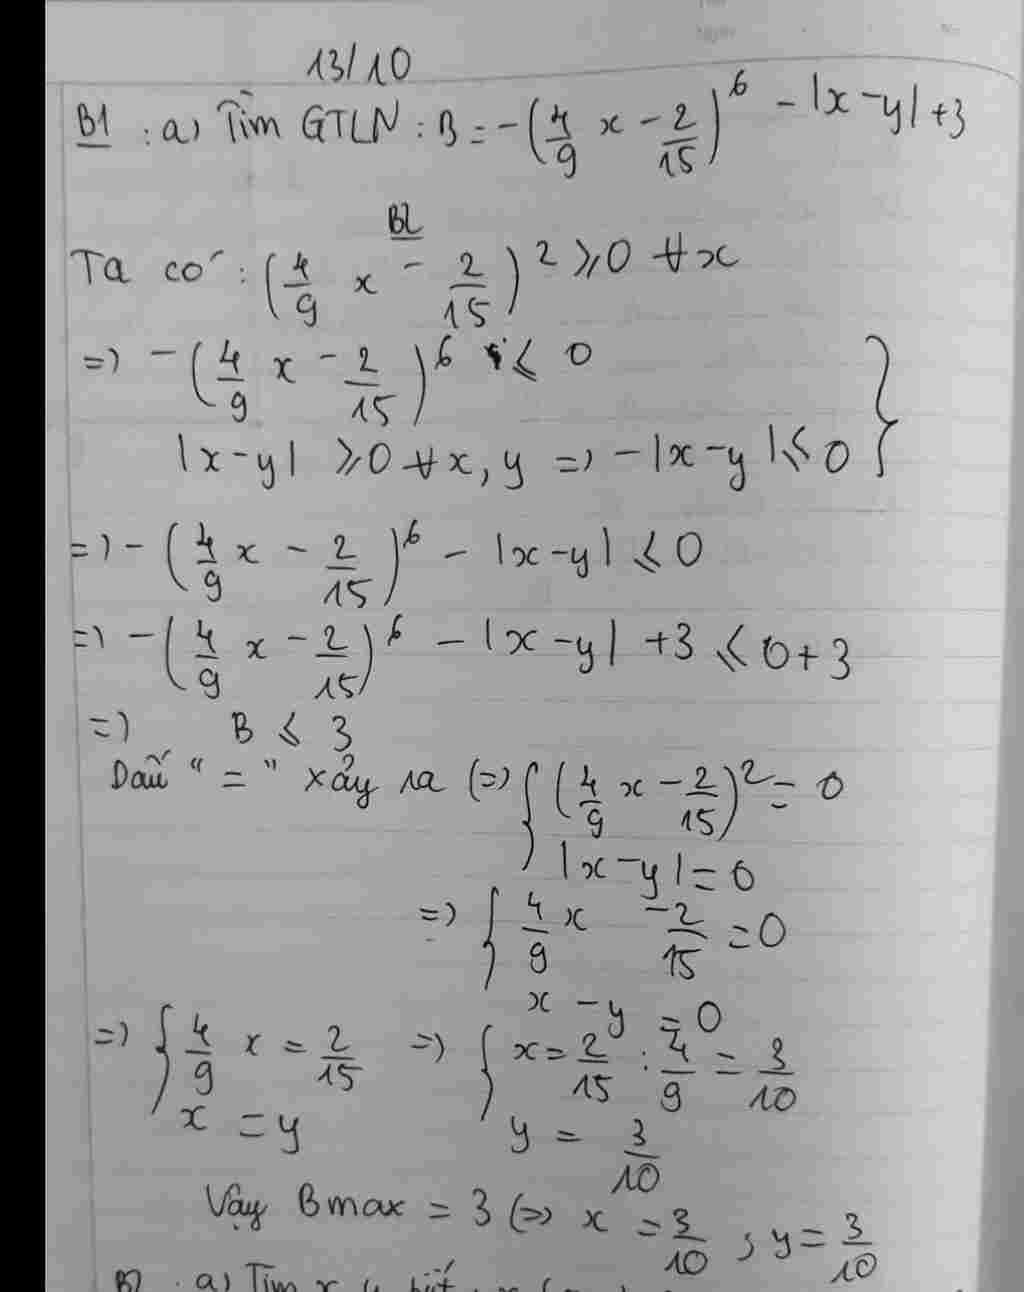 13/10
B1 : a) Tìm GTLN : B = -(4/9 x - 2/15)^6 - |x - y| + 3
B2
Ta có : (4/9 x - 2/15)^2 ⩾ 0 ∀x
=> -(4/9 x - 2/15)^6 ⩽ 0
|x - y| ⩾ 0 ∀x, y => -|x - y| ⩽ 0 }
=> -(4/9 x - 2/15)^6 - |x - y| ⩽ 0
=> -(4/9 x - 2/15)^6 - |x - y| + 3 ⩽ 0 + 3
=> B ⩽ 3
Dấu " = " xảy ra (=> { (4/9 x - 2/15)^2 = 0
|x - y| = 0
=> { 4/9 x - 2/15 = 0
x - y = 0
=> { 4/9 x = 2/15 => { x = 2/15 : 4/9 = 3/10
x = y y = 3/10
Vậy Bmax = 3 (=> x = 3/10 ; y = 3/10
B2 : a) Tìm x